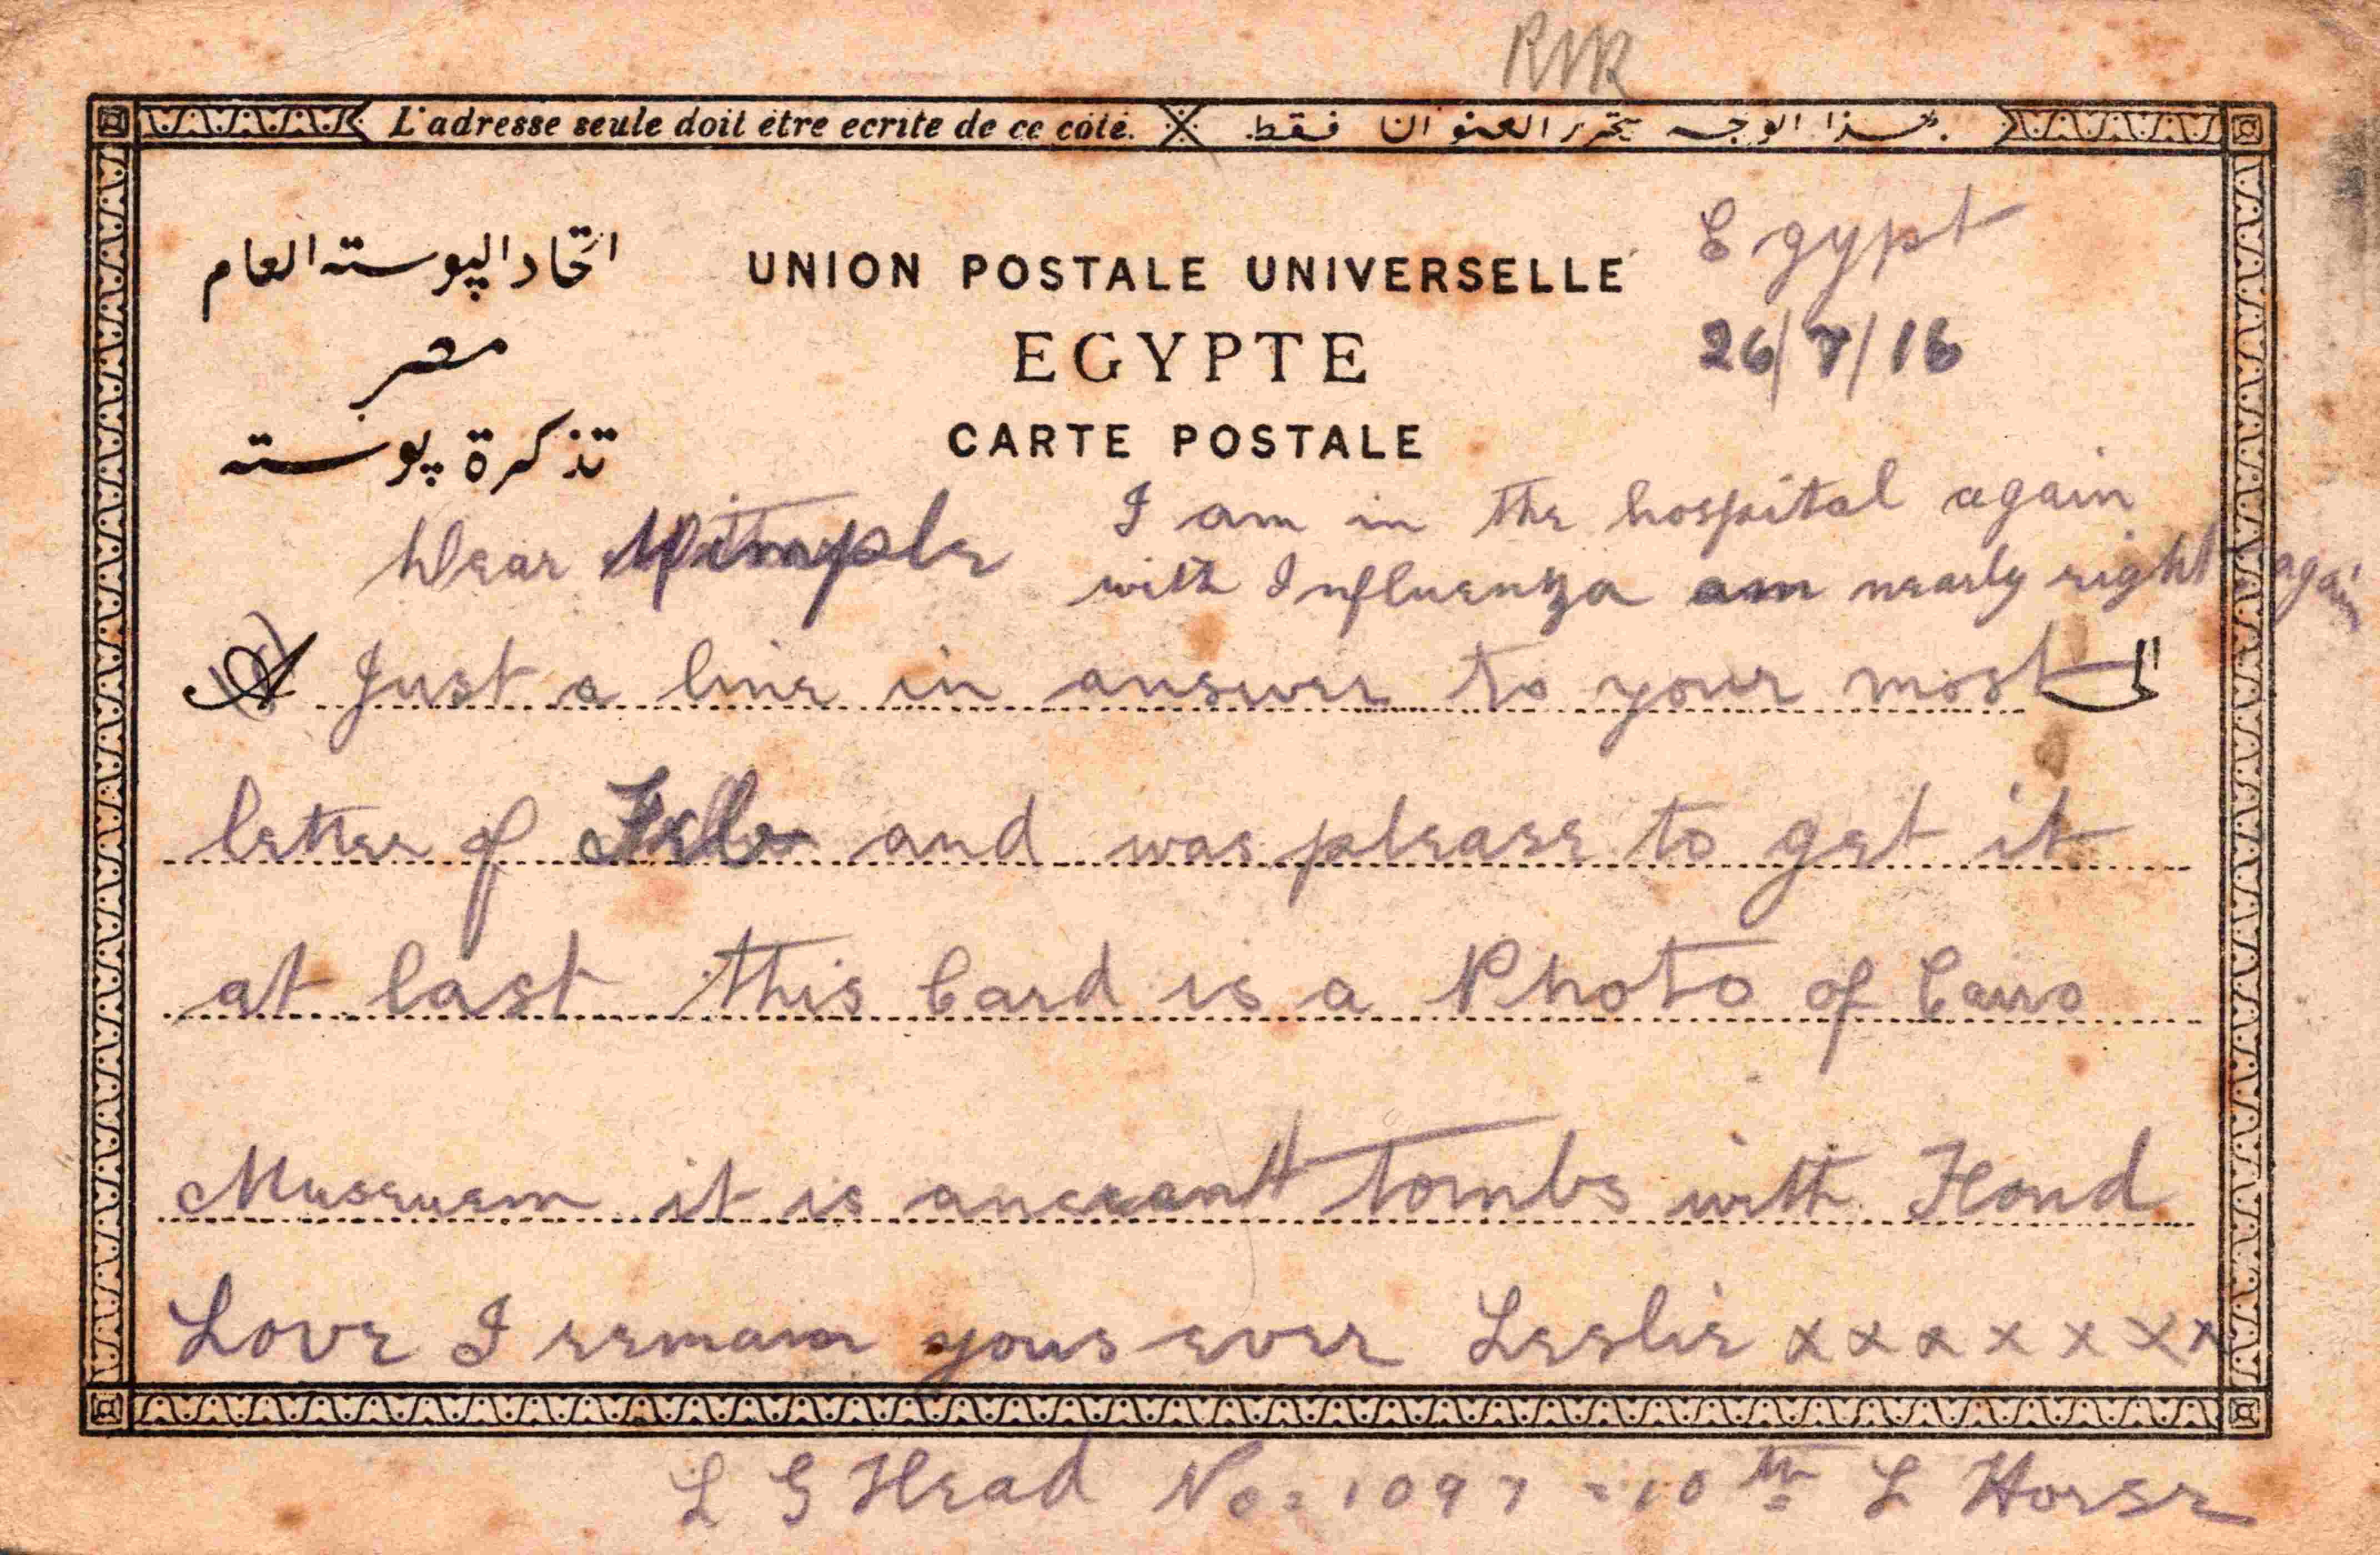 RVR
L'adresse seule doit être ecrite de ce côté.
بهذا الوجه يتحرر العنوان فقط.
اتحاد البوسته العام
مصر
تذكرة بوسته
UNION POSTALE UNIVERSELLE
EGYPTE
CARTE POSTALE
Egypt
26/7/16
Dear
I am in the hospital again
with Influenza am nearly right again
A Just a line in answer to your most الى
letter of and was please to get it
at last this Card is a Photo of Cairo
Museuem it is anceant tombs with Fond
Love I remain yours ever Leslie x x x x x x x
L G Head No = 1097 = 10th L Horse